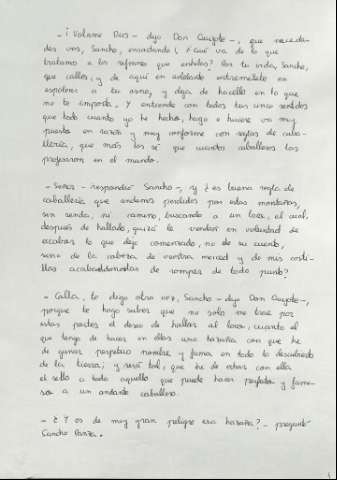 - ¡ Válame Dios - dijo Don Quijote -, que neceda-
des vas, Sancho, ensartando! ¿ Qué va de lo que
tratamos a los refranes que enhilas? Por tu vida, Sancho,
que calles, y de aquí en adelante entremétete en
espolear a tu asno, y deja de hacello en lo que
no te importa. Y entiende con todos tus cinco sentidos
que todo cuanto yo he hecho, hago e hiciere va muy
puesto en razón y muy conforme con reglas de caba-
llería, que más las sé que cuantos caballeros las
profesaron en el mundo.
- Señor - respondió Sancho -, y ¿ es buena regla de
caballería que andemos perdidos por estas montañas,
sin senda, ni camino, buscando a un loco, al cual,
después de hallado, quizá le vendrá en voluntad de
acabar lo que dejó comenzado, no de su cuento,
sino de la cabeza de vuestra merced y de mis costi-
llas, acabándonoslas de romper de todo punto?
- Calla, te digo otra vez, Sancho - dijo Don Quijote -,
porque te hago saber que no solo me trae por
estas partes el deseo de hallar al loco, cuanto el
que tengo de hacer en ellas una hazaña con que he
de ganar perpetuo nombre y fama en todo lo descubierto
de la tierra; y será tal, que he de echar con ella
el sello a todo aquello que puede hacer perfecto y famo-
so a un andante caballero.
- ¿ Y es de muy gran peligro esa hazaña? - preguntó
Sancho Panza.